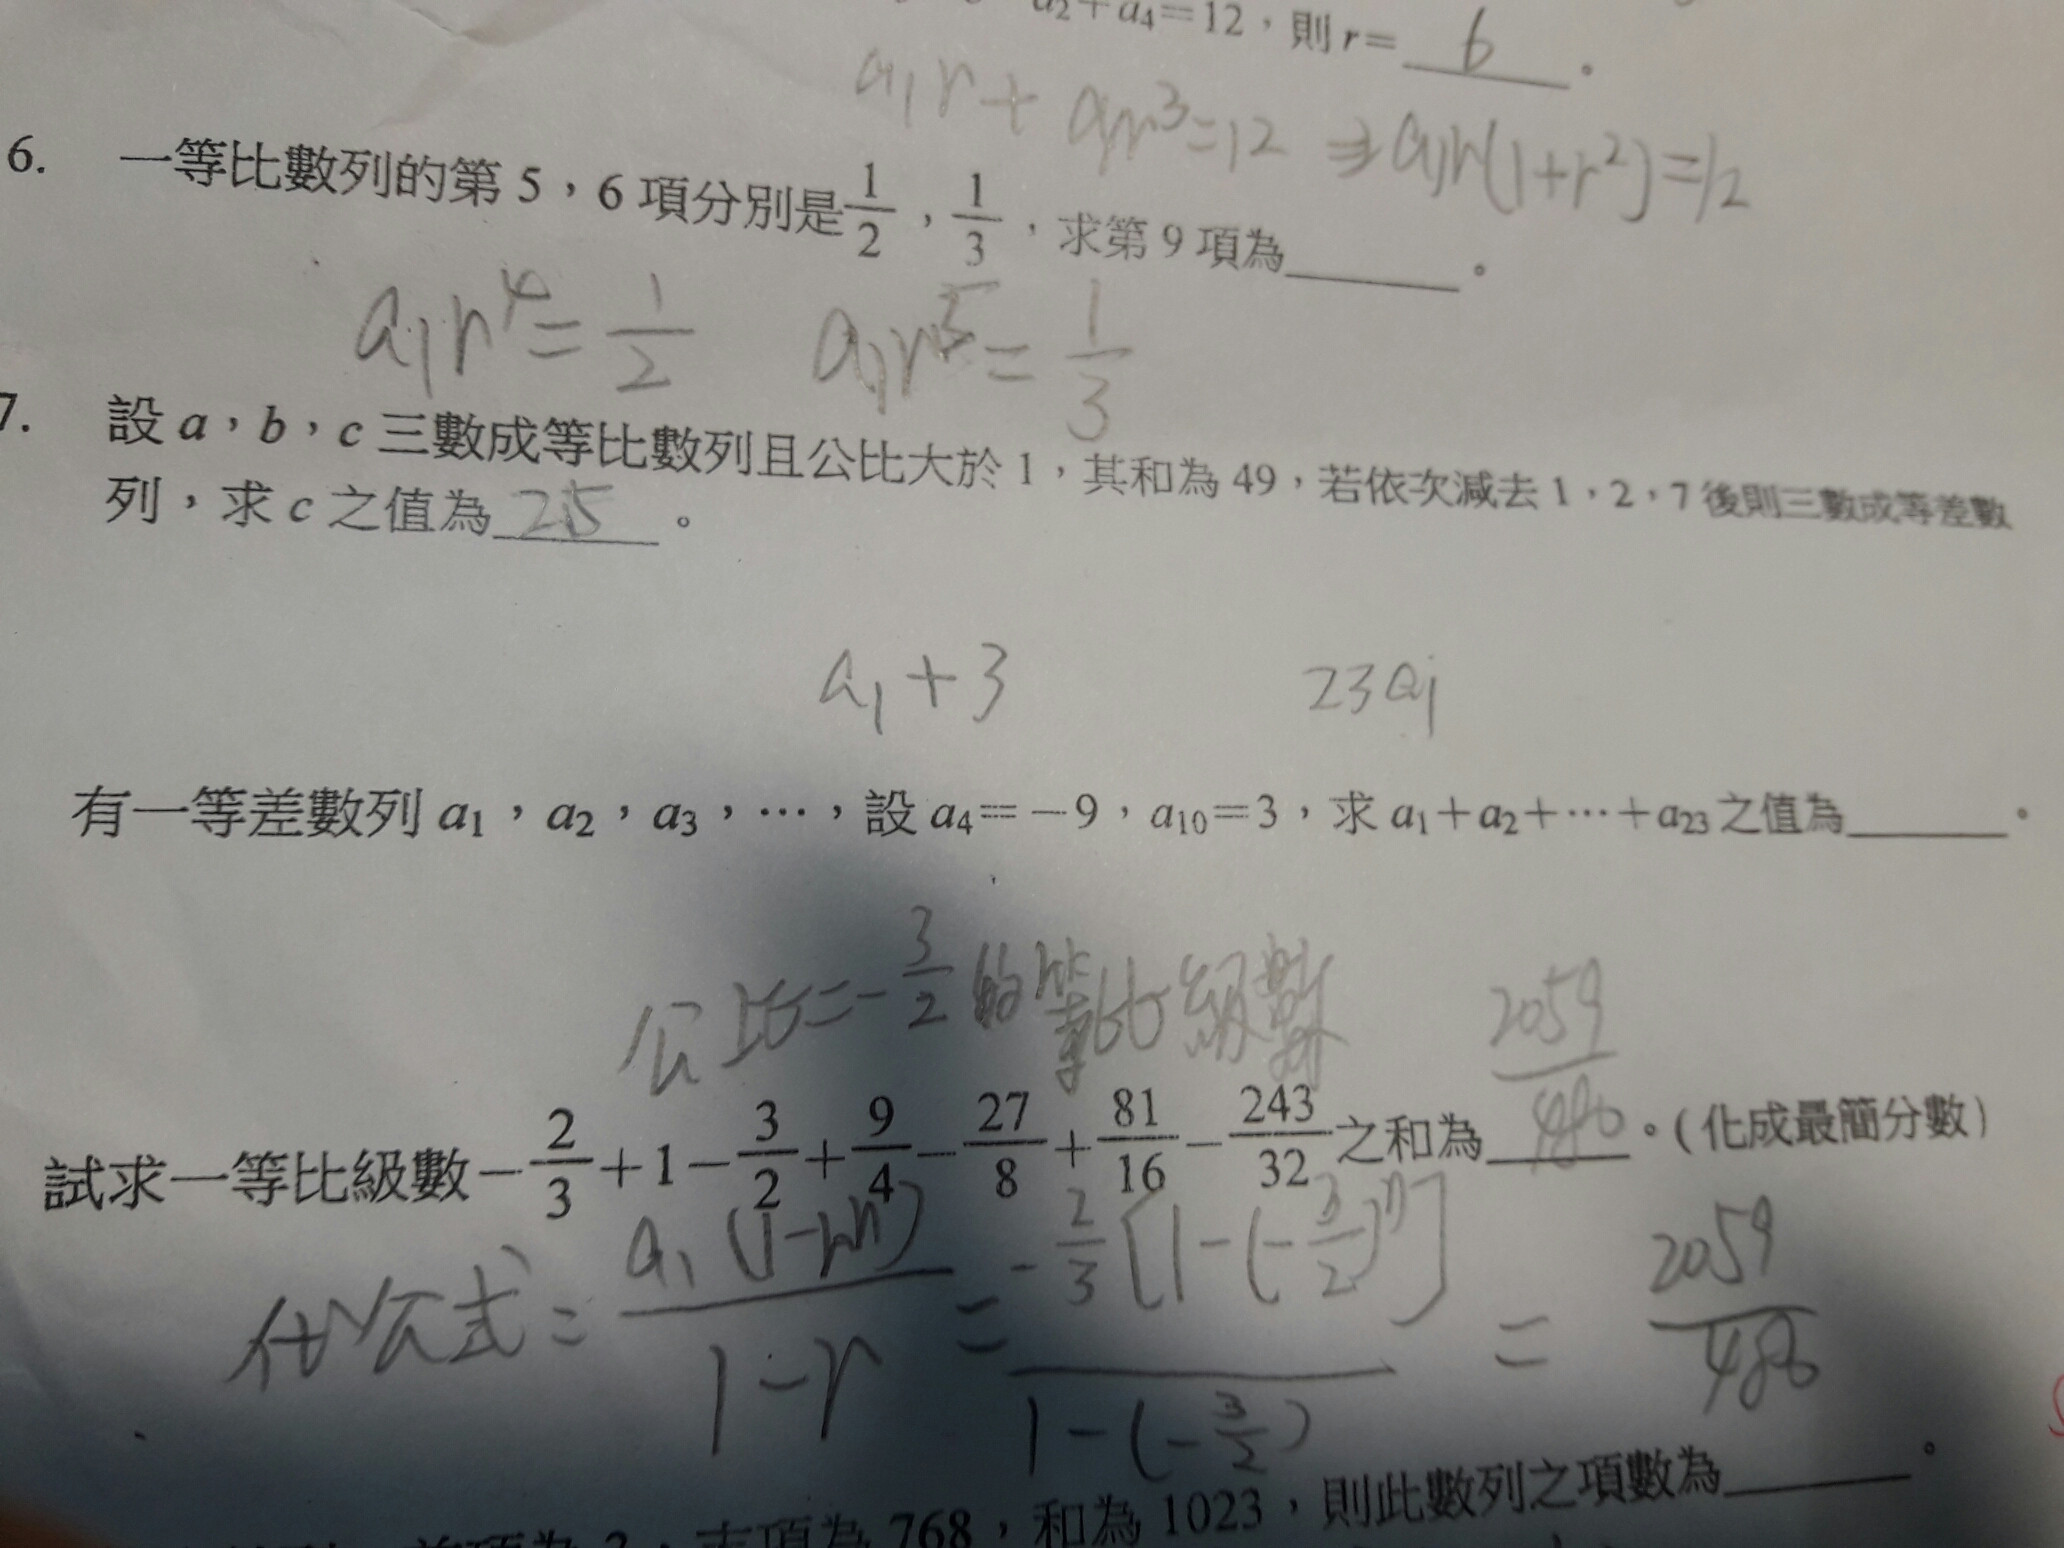 a₂+a₄=12，則 r= 6 。
a₁r + a₁r³=12 ⇒ a₁r(1+r²)=12
6. 一等比數列的第 5，6 項分別是 1/2，1/3，求第 9 項為______。
a₁r⁴= 1/2 a₁r⁵= 1/3
7. 設 a，b，c 三數成等比數列且公比大於 1，其和為 49，若依次減去 1，2，7 後則三數成等差數
列，求 c 之值為 25 。
a₁+3 23a₁
有一等差數列 a₁，a₂，a₃，…，設 a₄=−9，a₁₀=3，求 a₁+a₂+…+a₂₃ 之值為______。
公比=-3/2 的等比級數
試求一等比級數 −2/3+1−3/2+9/4−27/8+81/16−243/32 之和為 2059/486 。(化成最簡分數)
代公式 = a₁(1-rⁿ)/1-r = -2/3[1-(-3/2)ⁿ]/1-(-3/2) = 2059/486
768，和為 1023，則此數列之項數為______。